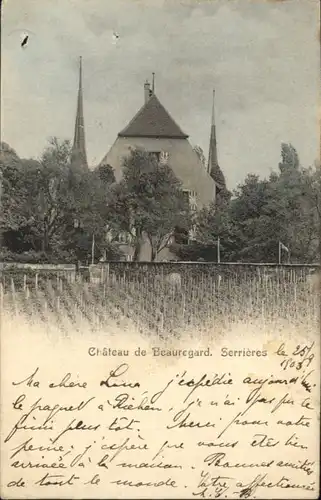 Château de Beauregard. Serrières le 25/9
1903
Ma chère Lina, j'expédie aujourd'hui
le paquet à Riehen, je n'ai pas pu le
finir plus tôt. Merci pour votre
peine; j'espère que vous êtes bien
arrivée à la maison. Bonnes amitiés
de tout le monde. Votre affectionée